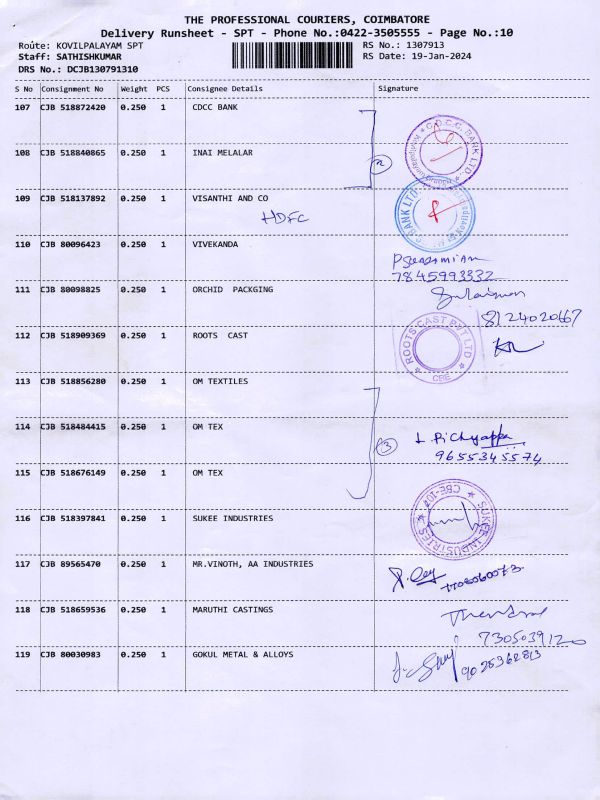 THE PROFESSIONAL COURIERS, COIMBATORE
Delivery Runsheet - SPT - Phone No.:0422-3505555 - Page No.:10
Route: KOVILPALAYAM SPT RS No.: 1307913
Staff: SATHISHKUMAR RS Date: 19-Jan-2024
DRS No.: DCJB130791310
S No Consignment No Weight PCS Consignee Details Signature
107 CJB 518872420 0.250 1 CDCC BANK
C.D.C.C. BANK LTD.
108 CJB 518840865 0.250 1 INAI MELALAR
2
109 CJB 518137892 0.250 1 VISANTHI AND CO
BANK LTD.
HDFC
110 CJB 80096423 0.250 1 VIVEKANDA
7845993332
111 CJB 80098825 0.250 1 ORCHID PACKGING
8124020667
112 CJB 518909369 0.250 1 ROOTS CAST
ROOTS CAST PVT LTD
CBE
113 CJB 518856280 0.250 1 OM TEXTILES
114 CJB 518484415 0.250 1 OM TEX
3
L Pichyappa
9655345574
115 CJB 518676149 0.250 1 OM TEX
116 CJB 518397841 0.250 1 SUKEE INDUSTRIES
SUKEE INDUSTRIES
CBE-107
117 CJB 89565470 0.250 1 MR.VINOTH, AA INDUSTRIES
118 CJB 518659536 0.250 1 MARUTHI CASTINGS
7305039120
119 CJB 80030983 0.250 1 GOKUL METAL & ALLOYS